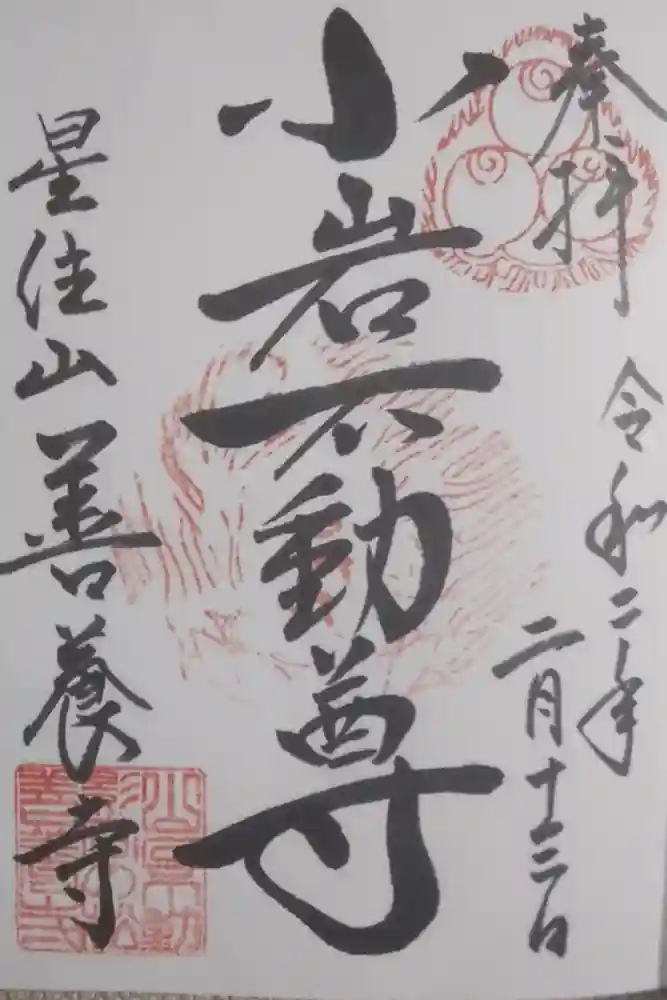 奉拝
令和二年
二月十三日
小岩不動尊
星住山善養寺